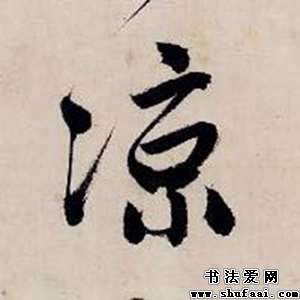 凉
书法爱网
www.shufaai.com